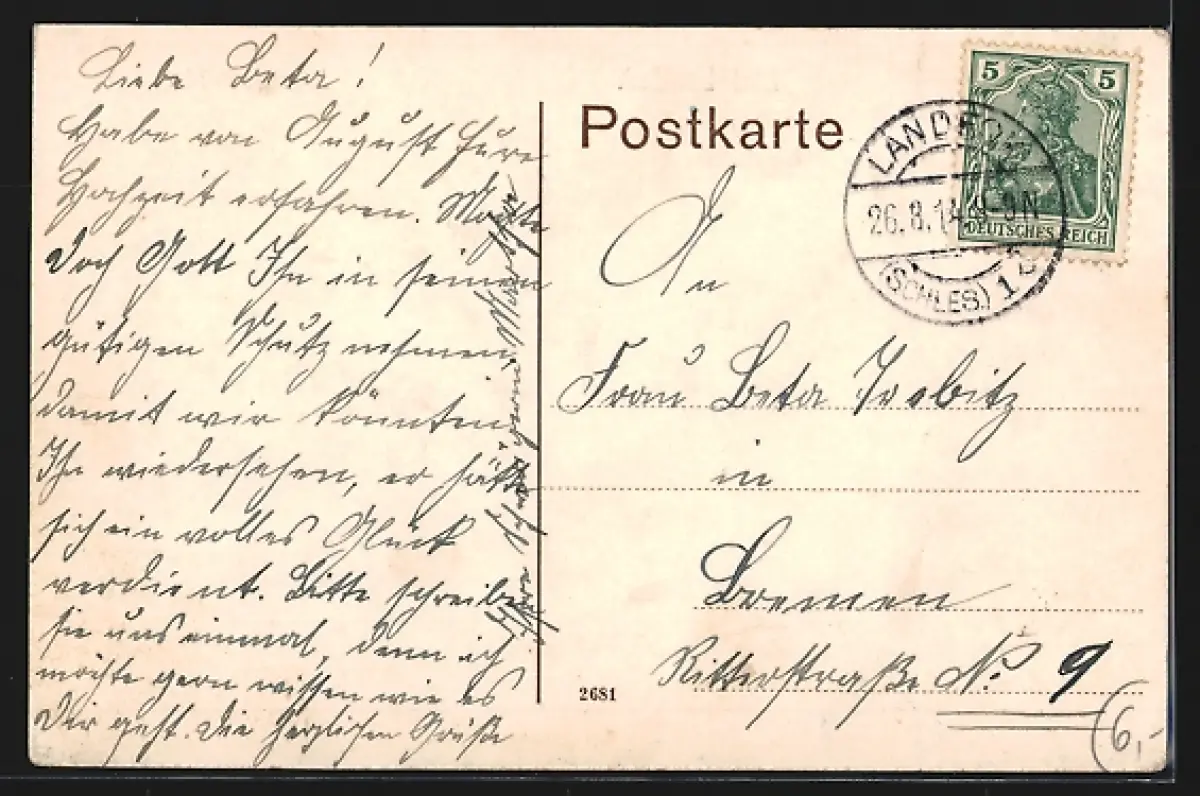 Liebe Beta!
Habe von August Eure
Hochzeit erfahren. Möchte
doch Gott Ihn in seinen
gütigen Schutz nehmen
damit wir könnten
Ihn wiedersehen, er hätte
sich ein volles Glück
verdient. Bitte schreiben
sie uns einmal, denn ich
möchte gern wissen wie es
Dir geht. Die herzlichen Grüße
Ihre Schwägerin
Postkarte
5 5
DEUTSCHES REICH
26.8.14 8-9N
(SCHLES.) 1
An
Frau Beta Trebitz
in
Bremen
Ritterstraße No. 9
2681
6,-